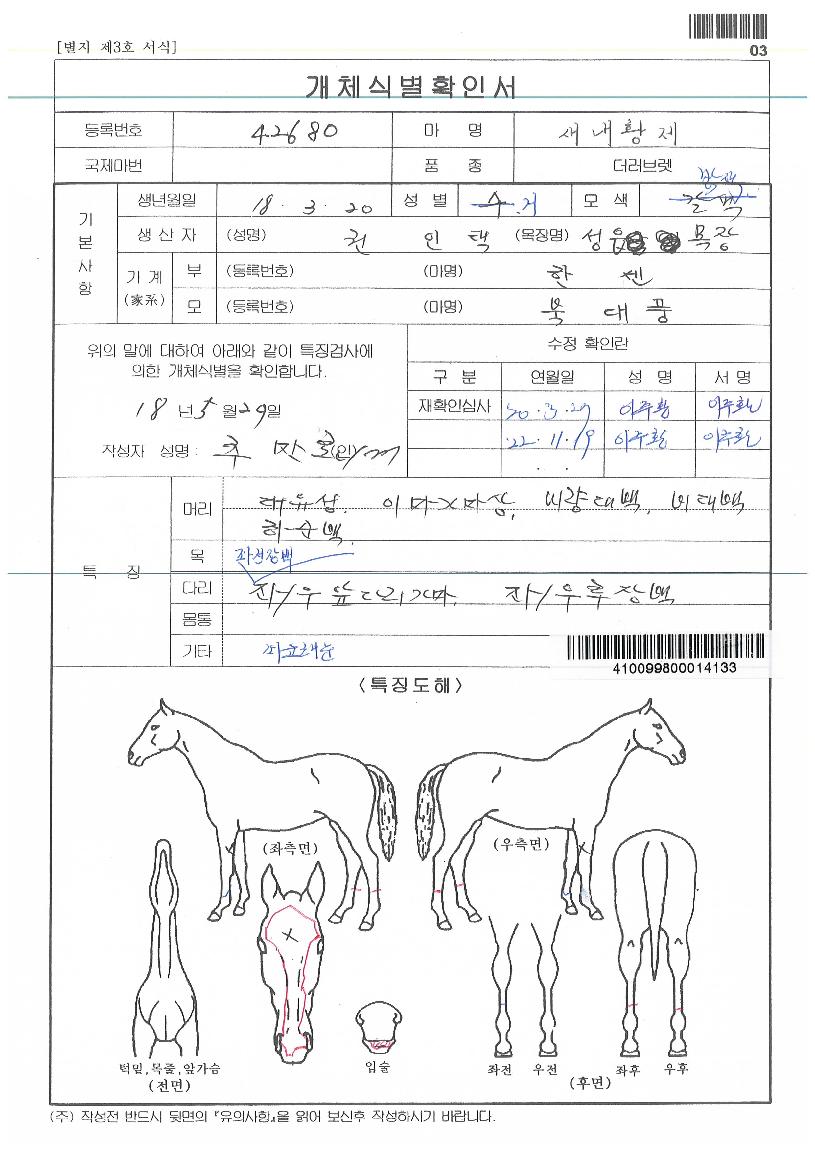 [별지 제3호 서식]
03
개체식별확인서
등록번호 42680 마 명 새내황제
국제마번 품 종 더러브렛
기본사항
생년월일 18. 3. 20 성 별 수 거 모 색
생 산 자 (성명) 권 인 택 (목장명) 목장
기 계 (家系) 부 (등록번호) (마명) 한 센
모 (등록번호) (마명) 북 대 풍
위의 말에 대하여 아래와 같이 특징검사에
의한 개체식별을 확인합니다.
18 년 5 월 29 일
작성자 성명 : (인)
수정 확인란
구 분 연월일 성 명 서 명
재확인심사 20. 3. 29
22. 11. 19
특 징
머리 대유성, 이마가마상, 비량대백, 비대백
하순백
목
다리 좌/우 앞다리가마, 좌/우후장백
몸통
기타
410099800014133
<특징도해>
(좌측면) (우측면)
턱밑,목줄,앞가슴
(전면)
입술
좌전 우전 좌후 우후
(후면)
(주) 작성전 반드시 뒷면의 『유의사항』을 읽어 보신후 작성하시기 바랍니다.